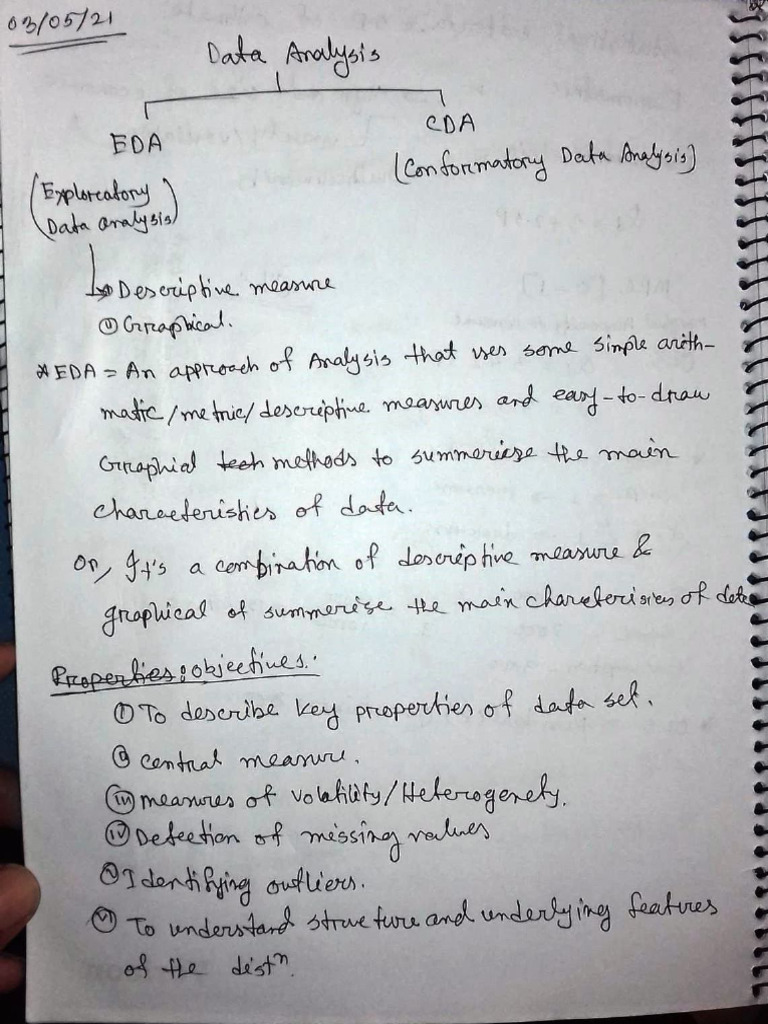 03/05/21
Data Analysis
EDA
CDA
(Exploreatory
Data analysis)
(Conformatory Data Analysis)
Descriptive measure
(ii) Grraphical.
* EDA = An approach of Analysis that uses some simple arith-
matic/metric/descriptive measures and easy-to-draw
Grraphial tech methods to summeriese the main
characteristics of data.
Or, It's a combination of descriptive measure &
graphical of summerise the main charecterisries of data
Properties: objectives:
(i) To describe key properties of data set.
(ii) central measure.
(iii) measures of volatility/Heterogenety.
(iv) Detection of missing values
(v) Identifying outliers.
(vi) To understand structure and underlying features
of the distⁿ.